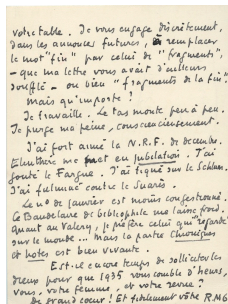 votre table. Je vous engage discrètement,
dans les annonces futures, à remplacer
le mot "fin" par celui de "fragments",
– que ma lettre vous avait d'ailleurs
soufflé – ou bien "fragments de la fin".
Mais qu'importe ?
Je travaille. Le tas monte peu à peu.
Je purge ma peine, consciencieusement.
J'ai fort aimé la N.R.F. de décembre.
met en jubilation. J'ai
goûté le Fargue. J'ai tiqué sur le Schlum.
J'ai fulminé contre le Suarès.
Le n° de Janvier est moins
Le Baudelaire de bibliophile me laisse froid.
Quant au Valéry, je préfère celui qui "regarde"
sur le monde... Mais la partie Chroniques
et notes est bien vivante.
Est-il encore temps de solliciter les
dieux pour que 1935 vous comble d'heurs,
vous, votre femme, et votre revue ?
De grand coeur ! Et fidèlement vôtre RMG